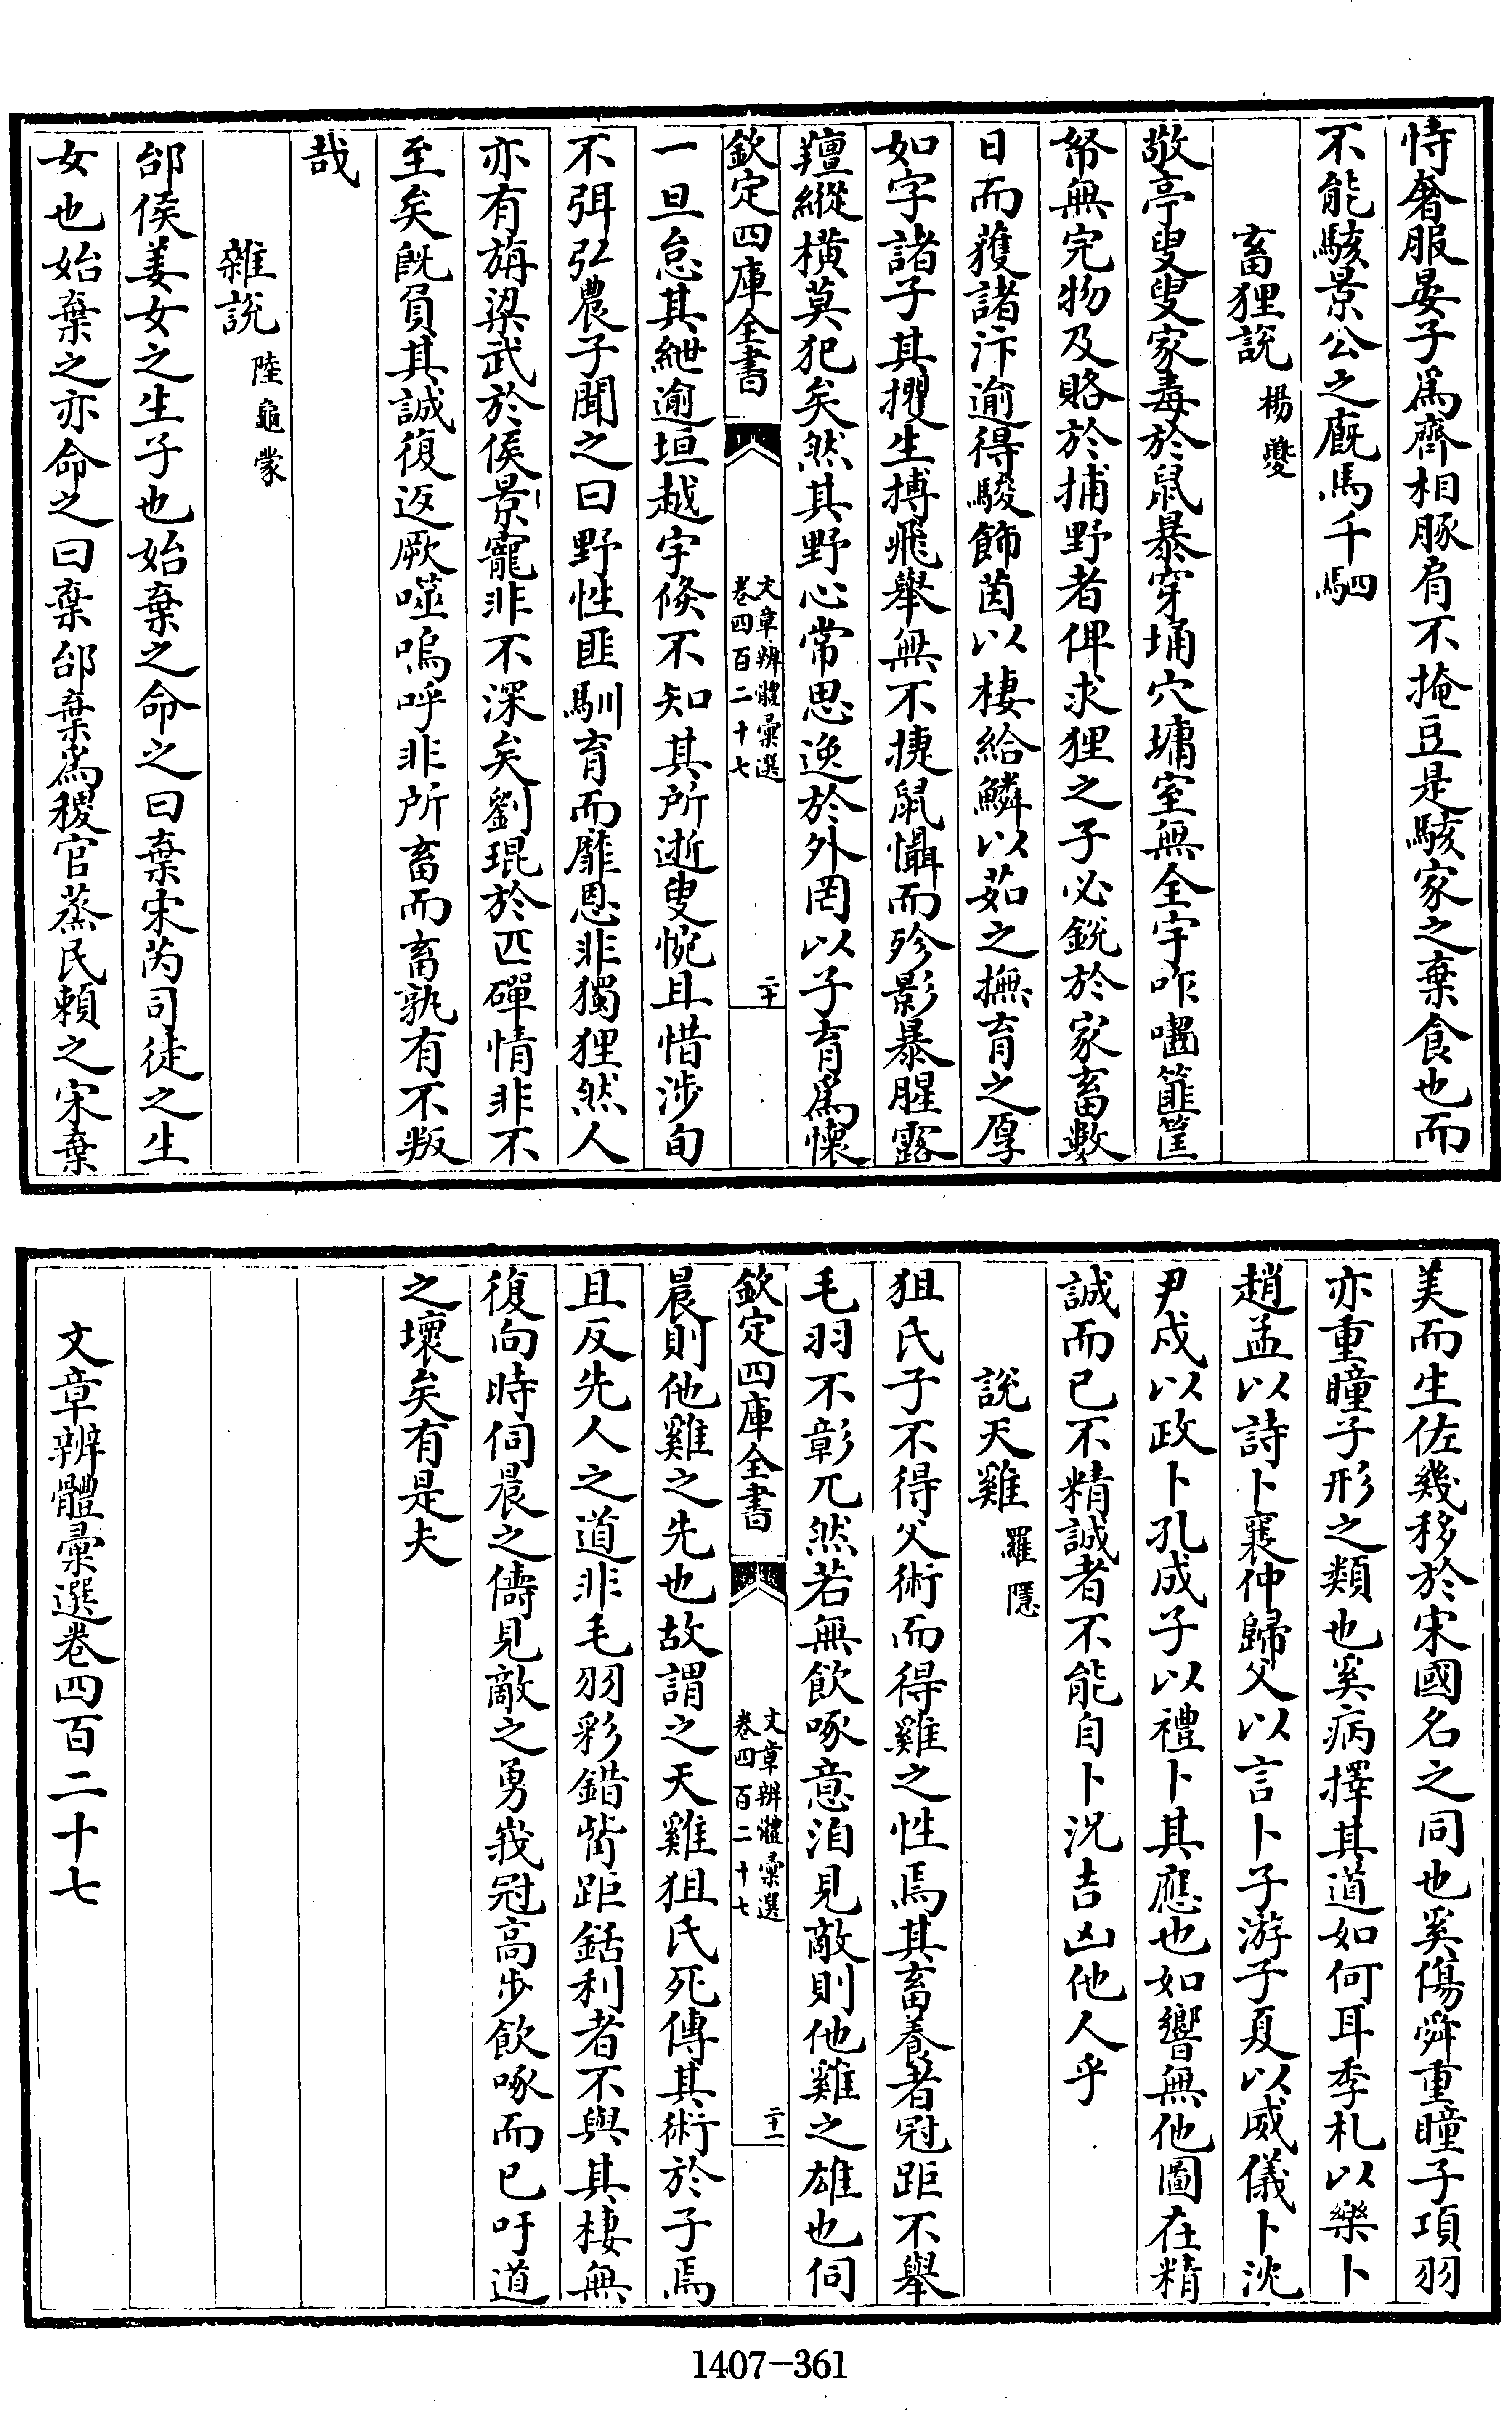 恃奢服晏子為齊相豚肩不掩豆是駭家之棄食也而
不能駭景公之廐馬千駟
畜狸說 楊夔
敬亭叟叟家毒於鼠暴穿埇穴墉室無全宇咋嚙篚筐
帑無完物及賂於捕野者俾求狸之子必銳於家畜數
日而獲諸汴逾得駿飾茵以棲給鱗以茹之撫育之厚
如字諸子其攫生搏飛舉無不捷鼠懾而殄影暴腥露
羶縱橫莫犯矣然其野心常思逸於外罔以子育為懷
欽定四庫全書
文章辨體彙選
卷四百二十七
二十
一旦怠其紲逾垣越宇倐不知其所逝叟惋且惜涉旬
不弭弘農子聞之曰野性匪馴育而靡恩非獨狸然人
亦有旃梁武於侯景寵非不深矣劉琨於匹磾情非不
至矣既負其誠復返厥噬嗚呼非所畜而畜孰有不叛
哉
雜說 陸龜蒙
邰侯姜女之生子也始棄之命之曰棄宋芮司徒之生
女也始棄之亦命之曰棄邰棄為稷官蒸民賴之宋棄
美而生佐幾移於宋國名之同也奚傷舜重瞳子項羽
亦重瞳子形之類也奚病擇其道如何耳季札以樂卜
趙孟以詩卜襄仲歸父以言卜子游子夏以威儀卜沈
尹戌以政卜孔成子以禮卜其應也如響無他圖在精
誠而已不精誠者不能自卜況吉凶他人乎
說天雞 羅隱
狙氏子不得父術而得雞之性焉其畜養者冠距不舉
毛羽不彰兀然若無飲啄意洎見敵則他雞之雄也伺
欽定四庫全書
文章辨體彙選
卷四百二十七
二十一
晨則他雞之先也故謂之天雞狙氏死傳其術於子焉
且反先人之道非毛羽彩錯觜距銛利者不與其棲無
復向時伺晨之儔見敵之勇峩冠高步飲啄而已吁道
之壞矣有是夫
文章辨體彙選卷四百二十七
1407-361